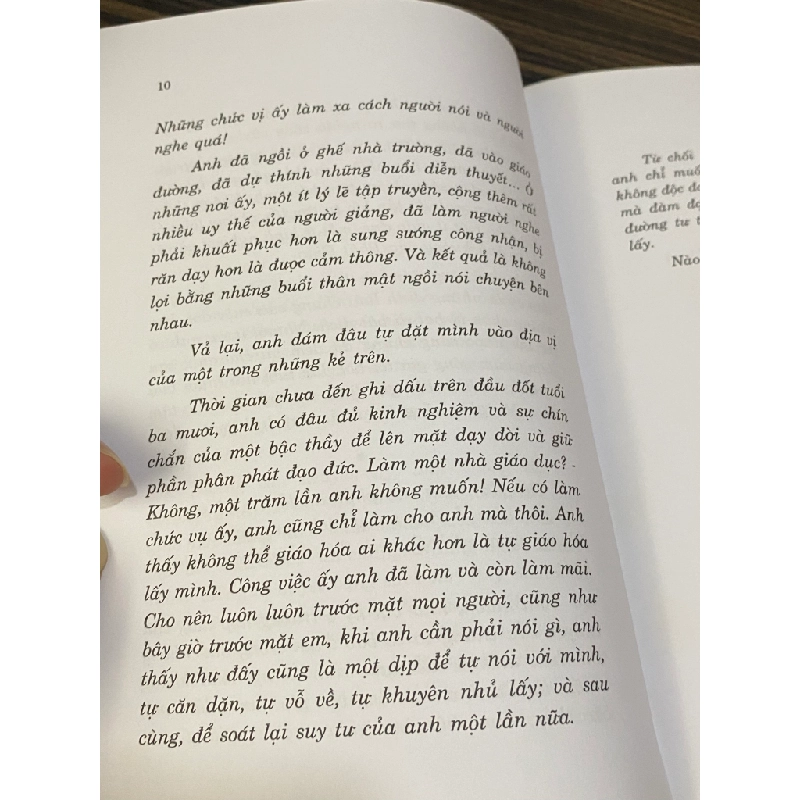 10
Những chức vị ấy làm xa cách người nói và người
nghe quá!
Anh đã ngồi ở ghế nhà trường, đã vào giáo
đường, đã dự thính những buổi diễn thuyết... Ở
những nơi ấy, một ít lý lẽ tập truyền, cộng thêm rất
nhiều uy thế của người giảng, đã làm người nghe
phải khuất phục hơn là sung sướng công nhận, bị
răn dạy hơn là được cảm thông. Và kết quả là không
lợi bằng những buổi thân mật ngồi nói chuyện bên
nhau.
Vả lại, anh dám đâu tự đặt mình vào địa vị
của một trong những kẻ trên.
Thời gian chưa đến ghi dấu trên đầu đốt tuổi
ba mươi, anh có đâu đủ kinh nghiệm và sự chín
chắn của một bậc thầy để lên mặt dạy đời và giữ
phần phân phát đạo đức. Làm một nhà giáo dục?
Không, một trăm lần anh không muốn! Nếu có làm
chức vụ ấy, anh cũng chỉ làm cho anh mà thôi. Anh
thấy không thể giáo hóa ai khác hơn là tự giáo hóa
lấy mình. Công việc ấy anh đã làm và còn làm mãi.
Cho nên luôn luôn trước mặt mọi người, cũng như
bây giờ trước mặt em, khi anh cần phải nói gì, anh
thấy như đấy cũng là một dịp để tự nói với mình,
tự căn dặn, tự vỗ về, tự khuyên nhủ lấy; và sau
cùng, để soát lại suy tư của anh một lần nữa.
Từ chối
anh chỉ
không độc
mà đàm
đường tư
lấy.
Nào